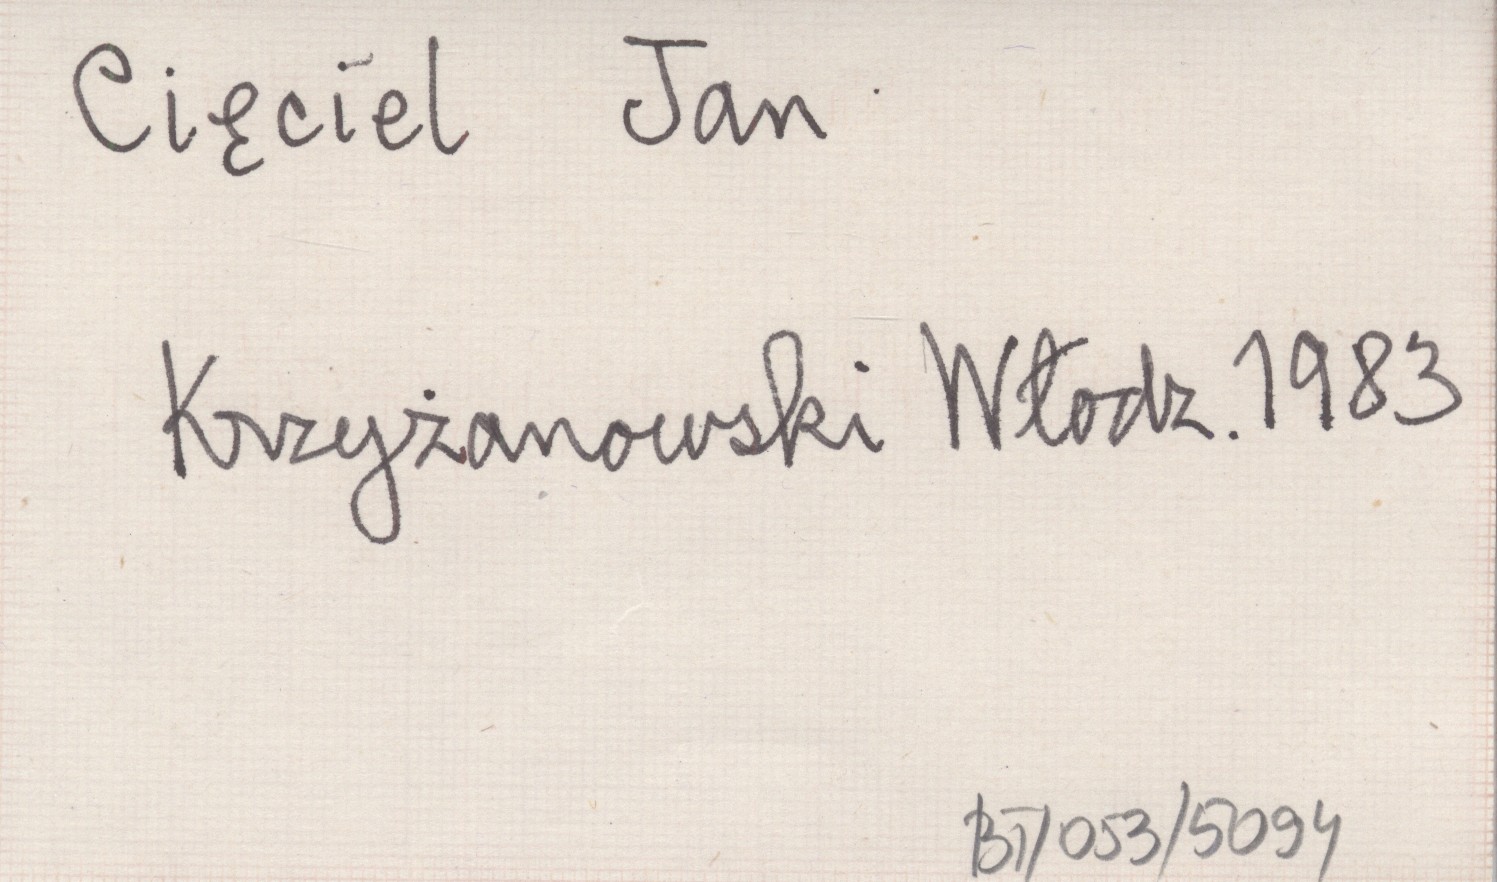 Cięciel Jan
Krzyżanowski Włodz. 1983
BT/053/5094